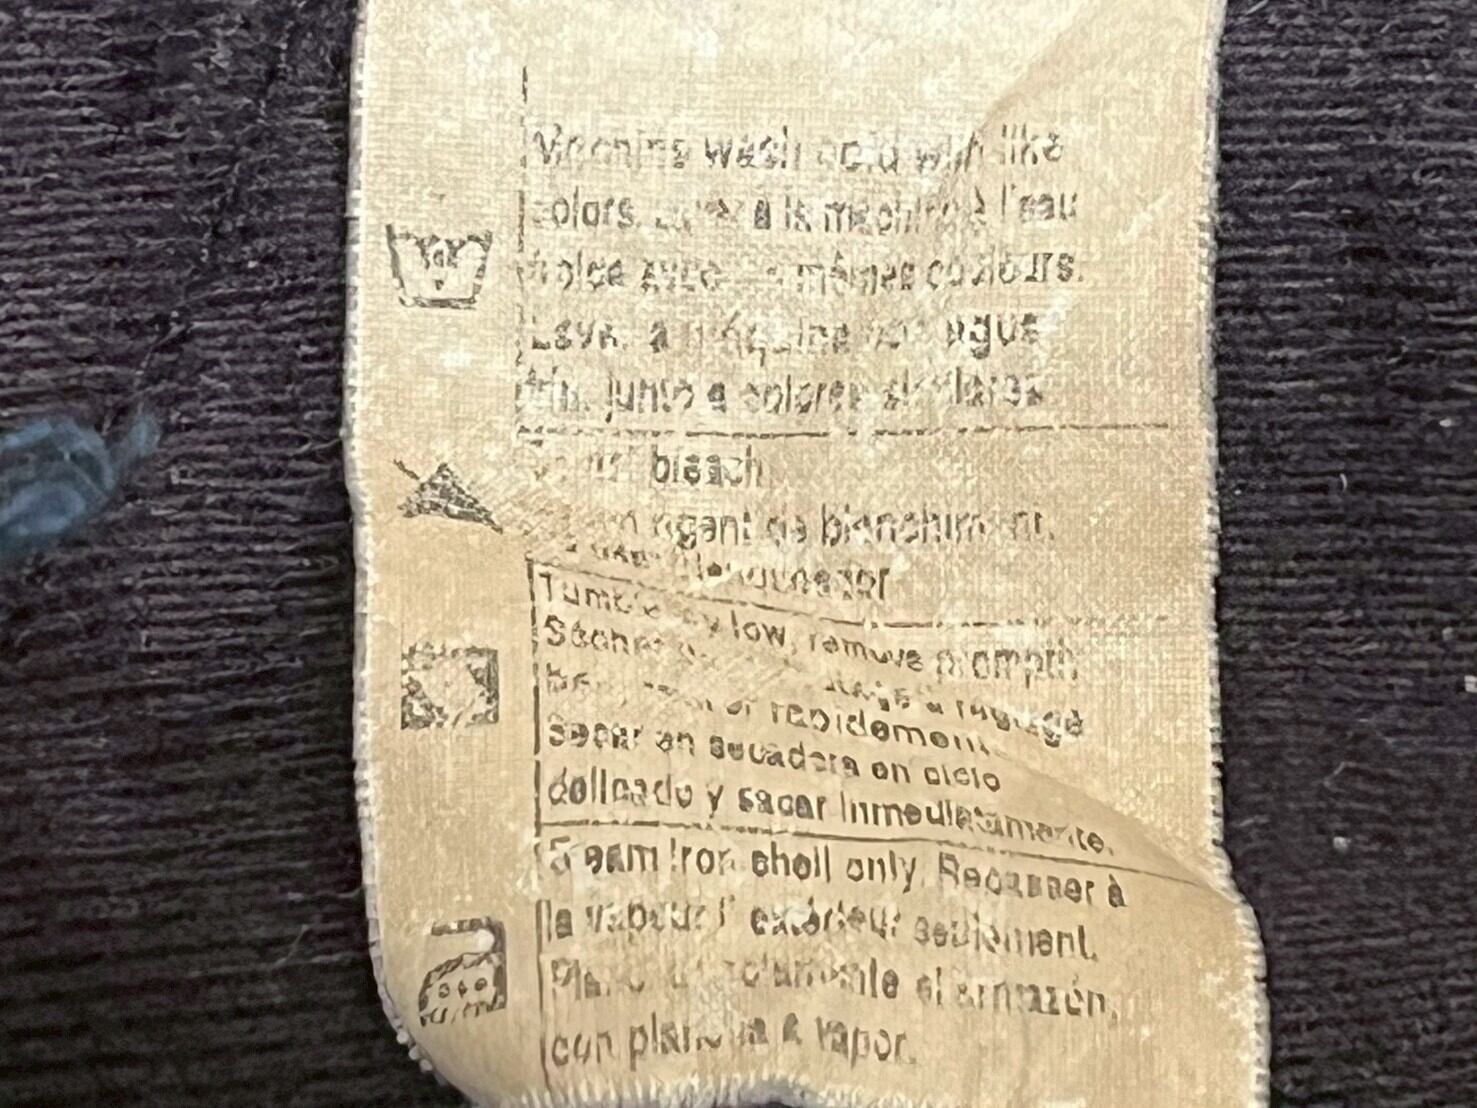 Machine wash cold with like
colors. Laver à la machine à l'eau
froide avec mêmes couleurs.
Lavar a máquina con agua
fría, junto a colores similares.
bleach
agent de blanchiment.
blanqueador
Tumble dry low, remove promptly.
Sécher réglage
rapidement.
Secar en secadora en ciclo
delicado y sacar inmediatamente.
Steam iron shell only. Repasser à
la vapeur l' extérieur seulement.
solamente el armazón,
con plancha a vapor.